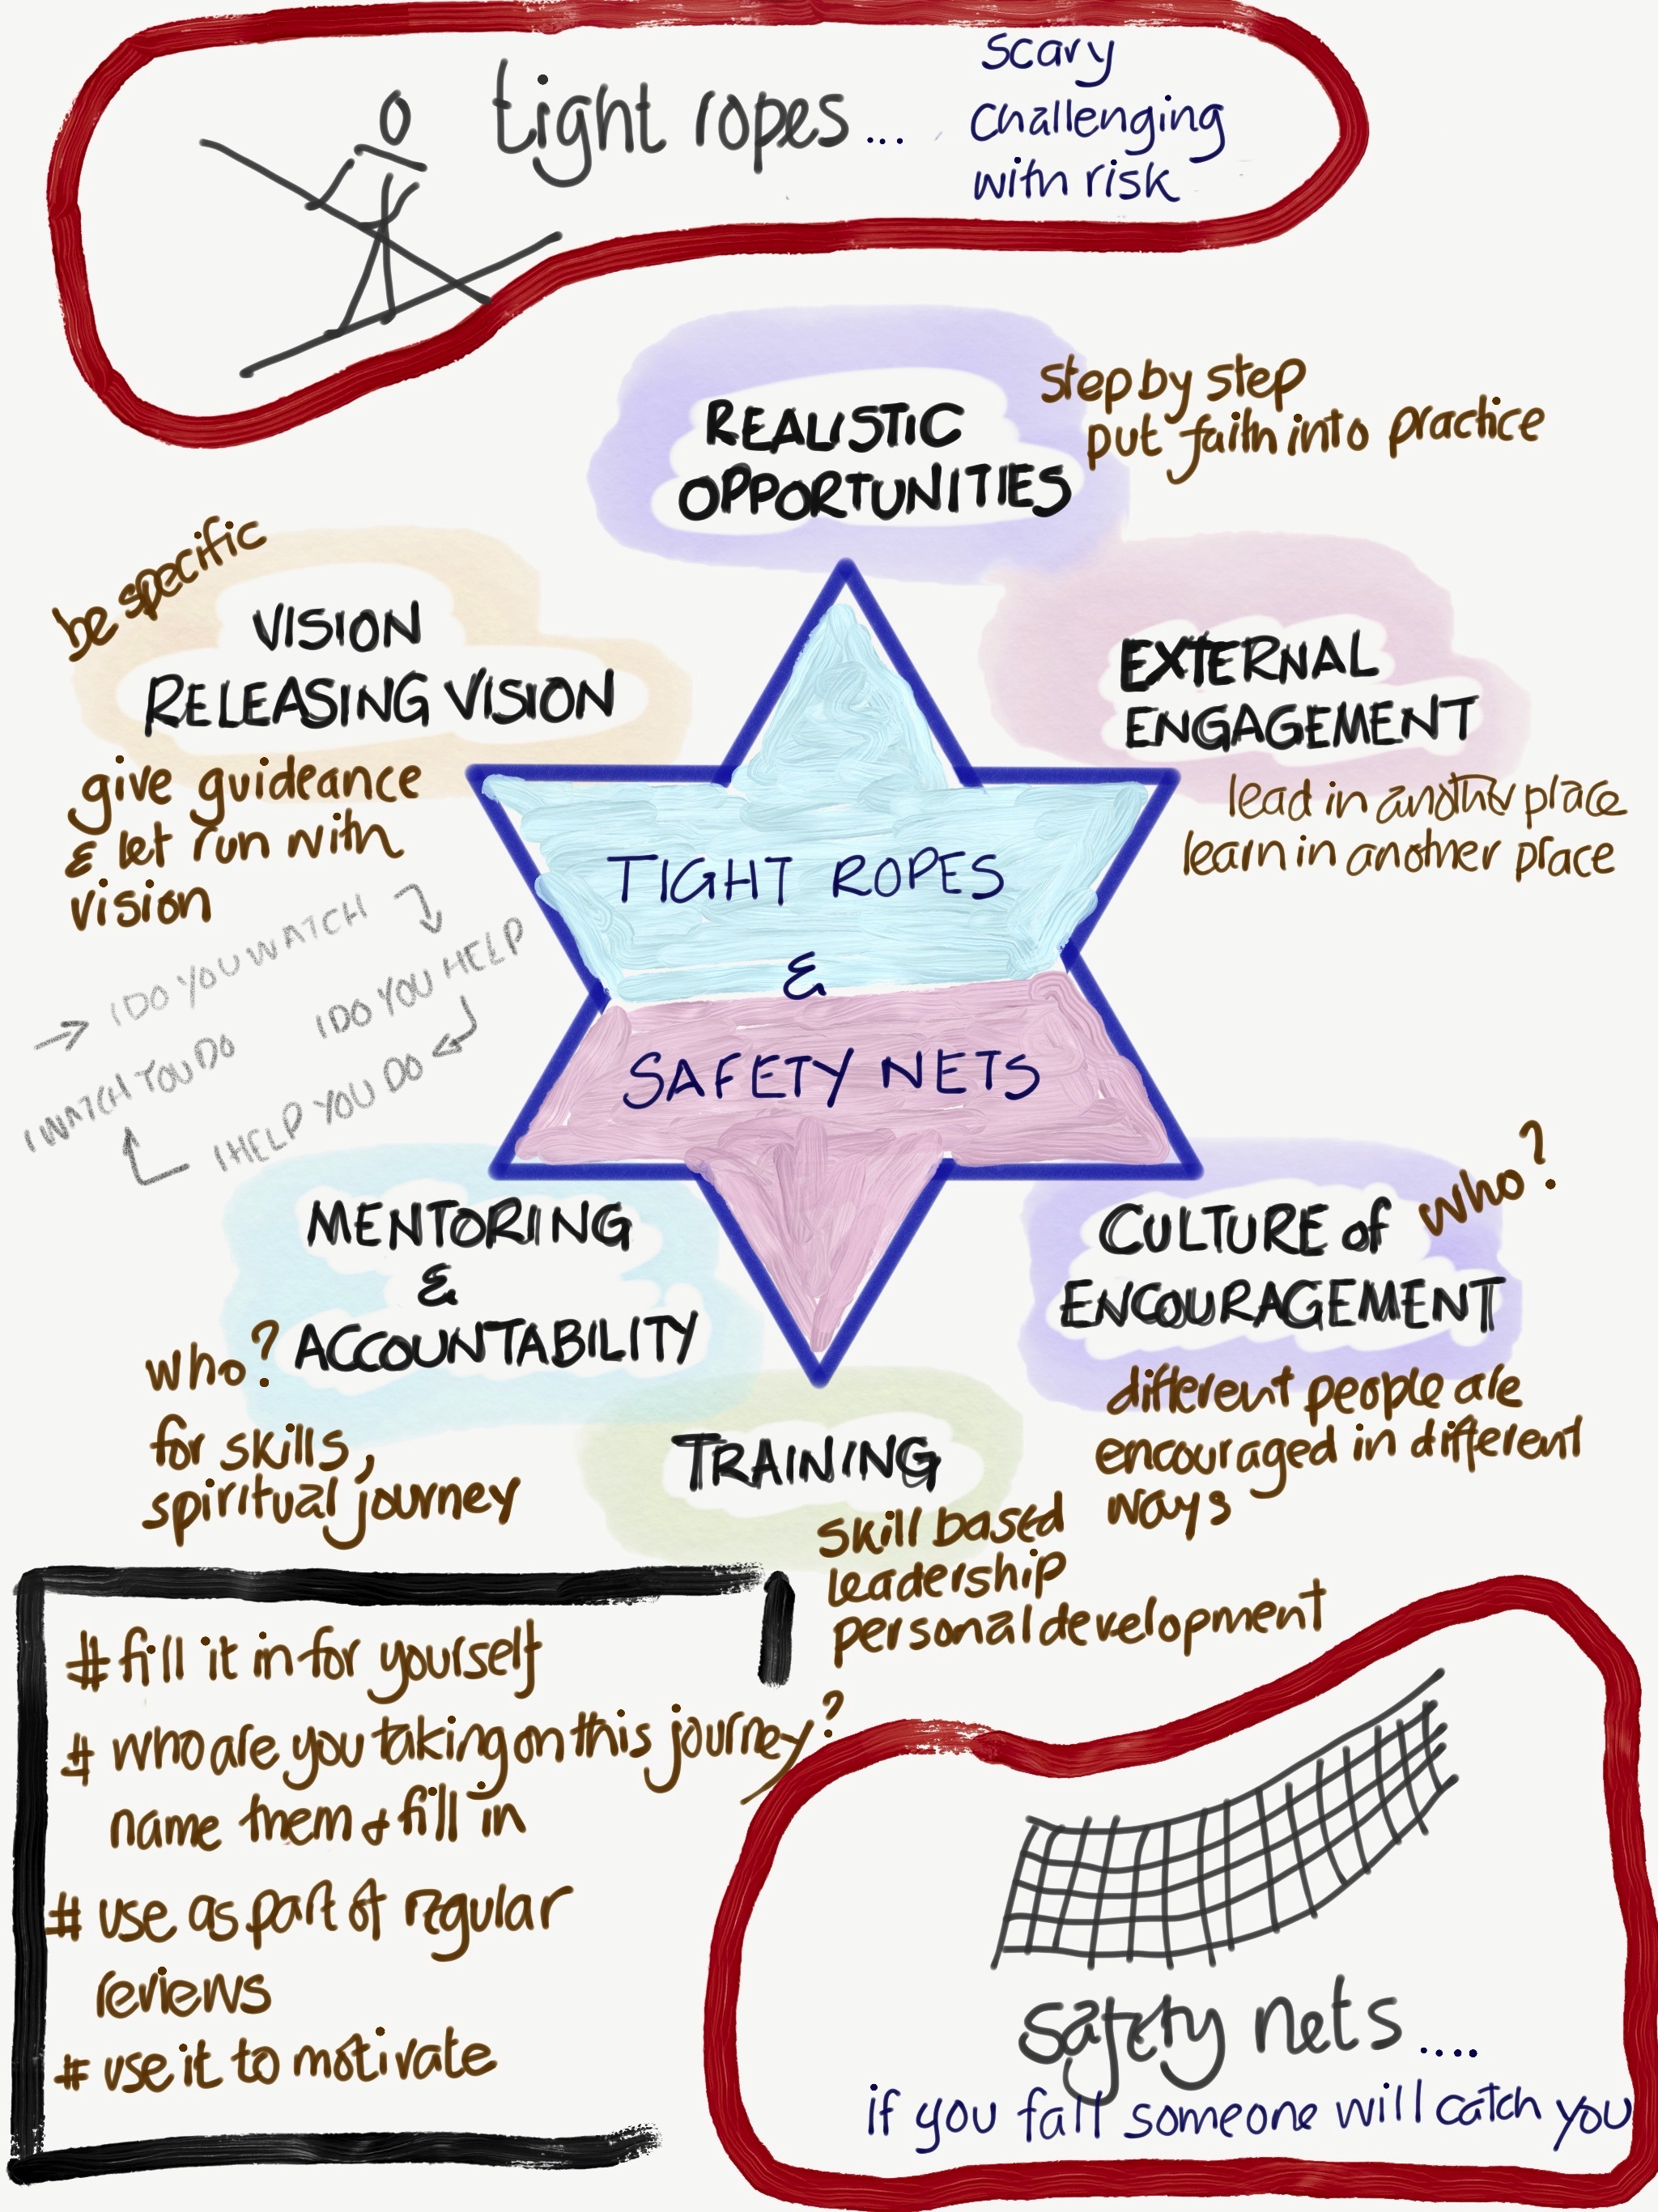 tight ropes...
scary
challenging
with risk
REALISTIC
OPPORTUNITIES
step by step
put faith into practice
be specific
VISION
RELEASING VISION
give guideance
& let run with
vision
EXTERNAL
ENGAGEMENT
lead in another place
learn in another place
TIGHT ROPES
&
SAFETY NETS
→ I DO YOU WATCH
I DO YOU HELP
I HELP YOU DO
I WATCH YOU DO
MENTORING
&
ACCOUNTABILITY
who?
for skills,
spiritual journey
CULTURE of
ENCOURAGEMENT
who?
different people are
encouraged in different
ways
TRAINING
skill based
leadership
personal development
# fill it in for yourself
# who are you taking on this journey?
name them & fill in
# use as part of regular
reviews
# use it to motivate
safety nets....
if you fall someone will catch you